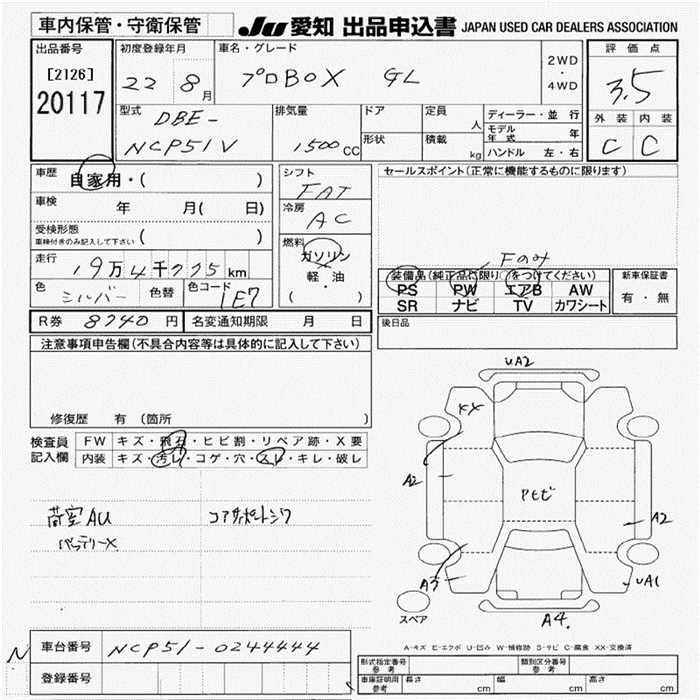 車内保管・守衛保管
JU 愛知 出品申込書 JAPAN USED CAR DEALERS ASSOCIATION
出品番号
[2126]
20117
初度登録年月
22 8月
車名・グレード
プロBOX GL
2WD
・
4WD
評価点
3.5
外装 内装
C C
型式
DBE-
NCP51V
排気量
1500 CC
ドア
形状
定員 人
積載 kg
ディーラー・並行
モデル年式 年
ハンドル 左・右
車歴
自家用・( )
車検 年 月( 日)
受検形態
車検付きのみ記入して下さい ( )
走行
19万4千775km
色 シルバー 色替 色コード 1E7
R券 8740 円 名変通知期限 月 日
シフト
FAT
冷房
AC
燃料
ガソリン
軽・油
( )
セールスポイント(正常に機能するものに限ります)
Fのみ
装備品(純正品に限り○をつけてください)
PS PW エアB AW
SR ナビ TV カワシート
新車保証書
有・無
後日品
注意事項申告欄(不具合内容等は具体的に記入して下さい)
修復歴 有(箇所 )
検査員
記入欄
FW キズ・飛石・ヒビ割・リペア跡・X要
内装 キズ・汚レ・コゲ・穴・スレ・キレ・破レ
荷室AU コアサポートシワ
バッテリーX
UA2
XX
A2
Aモビ
A2
A3
UA1
スペア
A4
A-キズ E-エクボ U-凹み W-補修跡 S-サビ C-腐食 XX-交換済
N
車台番号 NCP51-0244444
登録番号
形式指定番号
参考
類別区分番号
参考
車庫証明用
参考
長さ cm 幅 cm 高さ cm